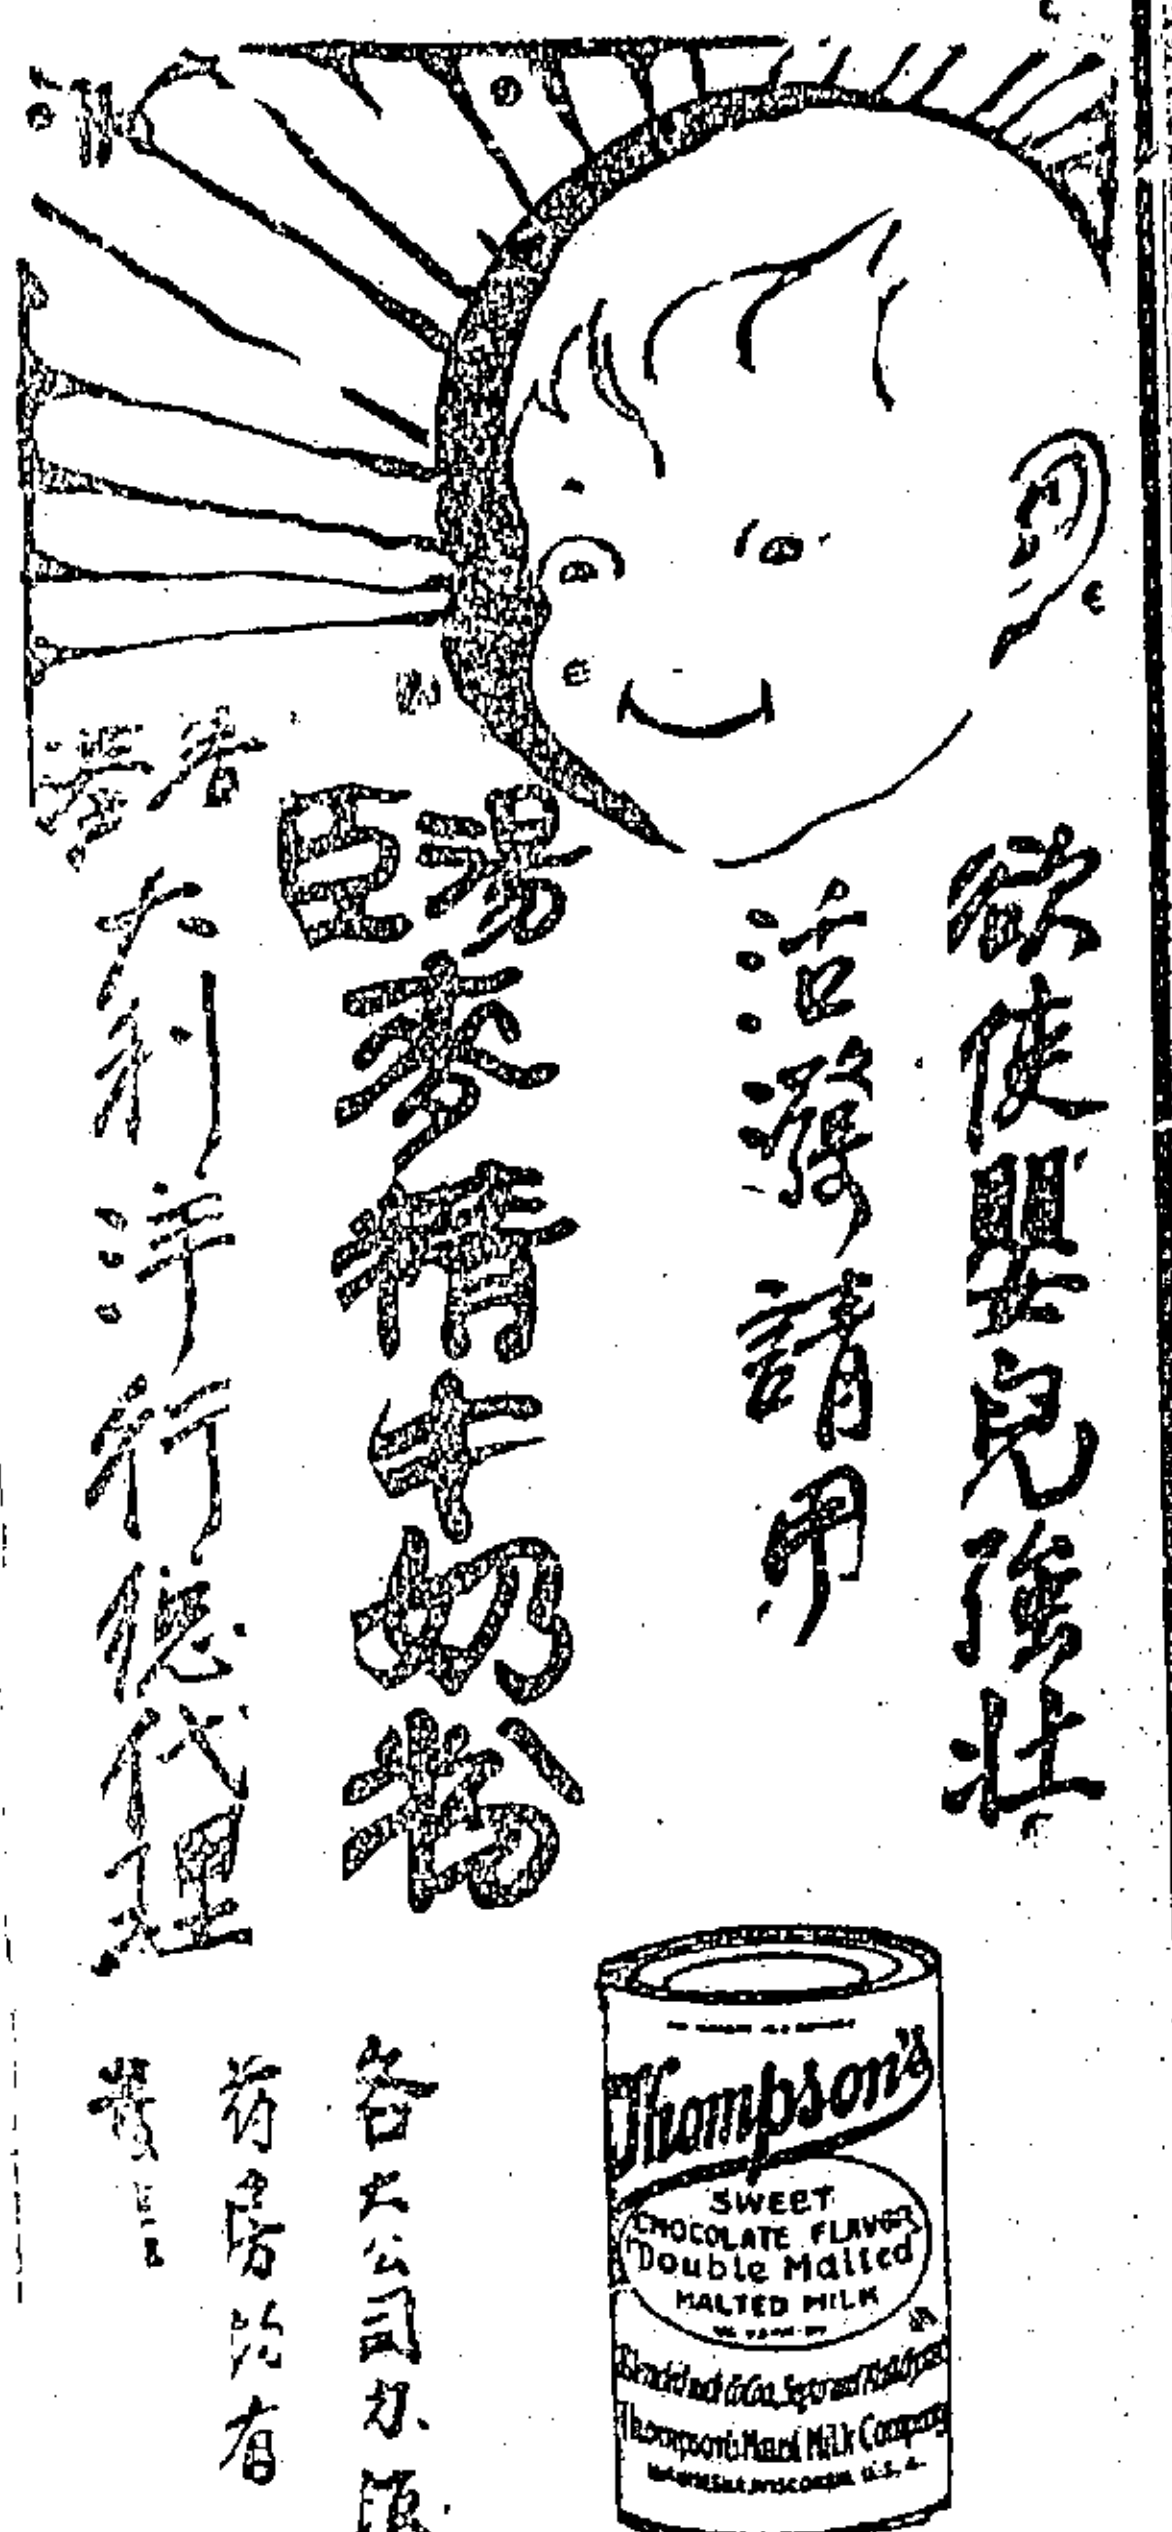 欲使嬰兒強壯
活潑請用
湯臣
麥精牛奶粉
香港
大利洋行總代理
各大公司
药房均有
發
Thompson's
SWEET
CHOCOLATE FLAVOR
Double Malted
MALTED MILK
Thompson's Malted Milk Company
WAUKESHA, WISCONSIN, U.S.A.